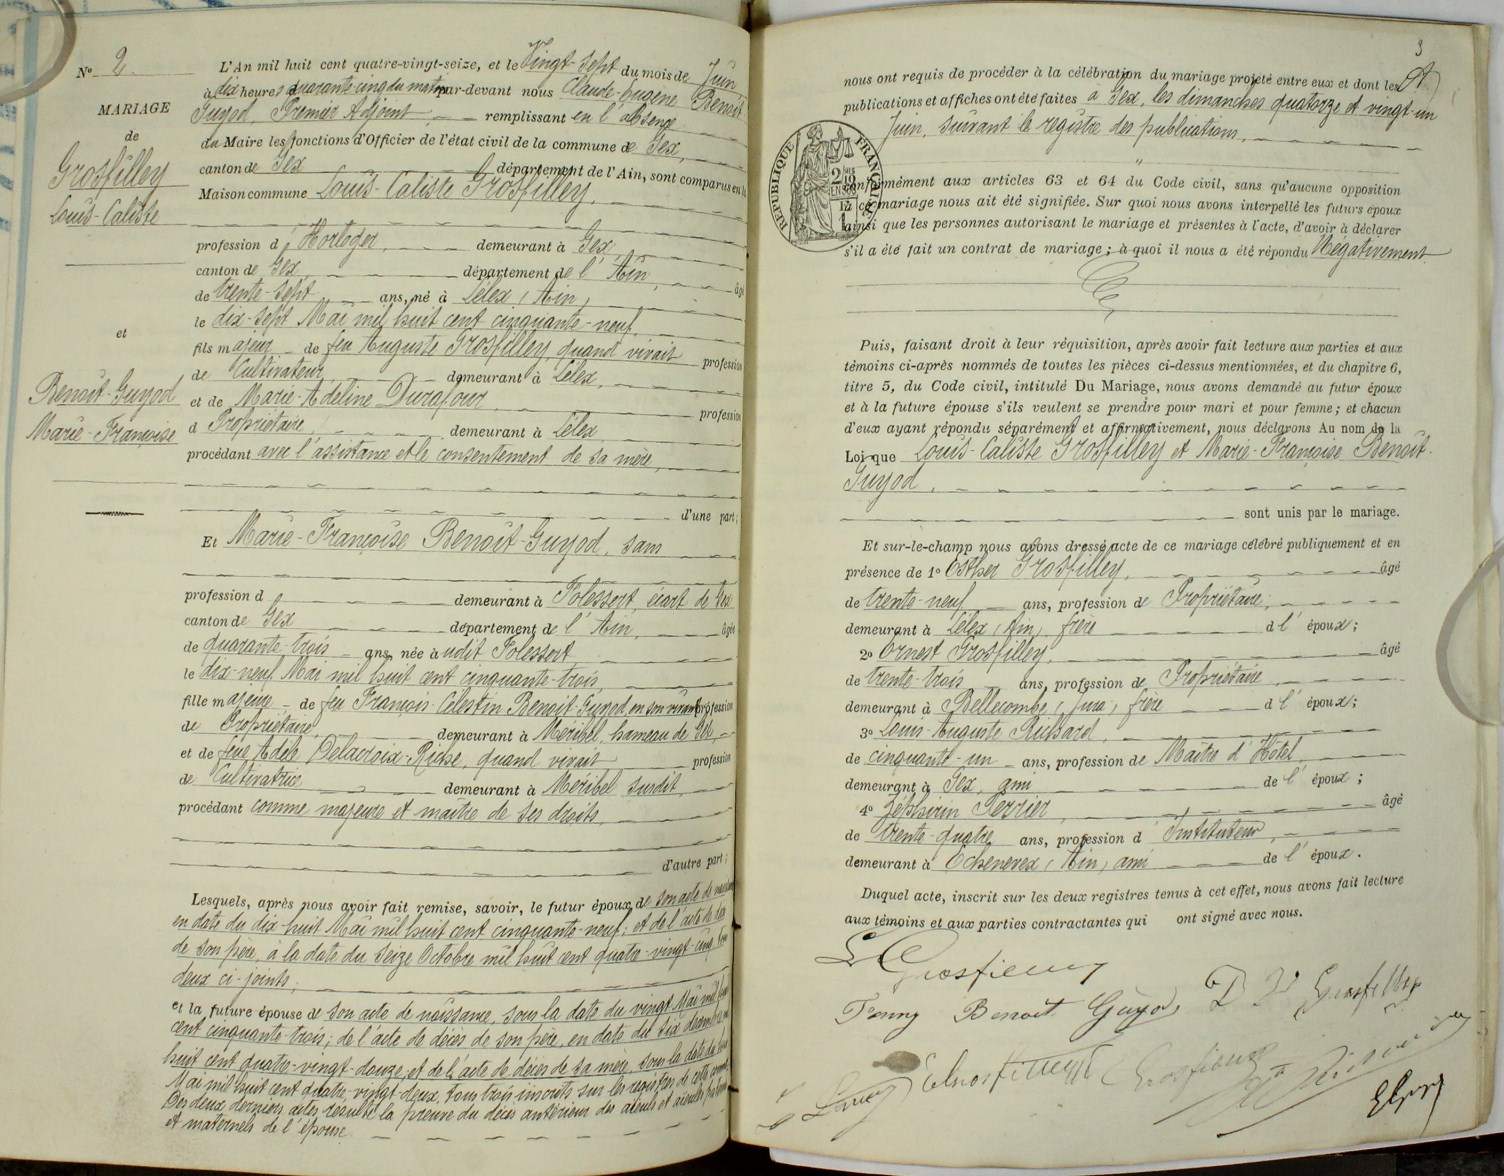 No 2.
MARIAGE
de
Grosfilley
Louis-Caliste
et
Benoît-Guyod
Marie-Françoise
L'An mil huit cent quatre-vingt-seize, et le Vingt-sept du mois de Juin
à dix heures quarante cinq du matin par-devant nous Claude-Eugène Benoît
Guyod, Premier Adjoint, remplissant en l'absence
du Maire les fonctions d'Officier de l'état civil de la commune de Gex,
canton de Gex département de l'Ain, sont comparus en la
Maison commune Louis-Caliste Grosfilley,
profession d'Horloger, demeurant à Gex
canton de Gex, département de l'Ain, âgé
de trente-sept ans, né à Lélex (Ain)
le dix-sept Mai mil huit cent cinquante-neuf,
fils majeur de feu Auguste Grosfilley, quand vivait profession
de Cultivateur, demeurant à Lélex,
et de Marie-Adeline Durafour, profession
d Propriétaire, demeurant à Lélex
procédant avec l'assistance et le consentement de sa mère,
d'une part;
Et Marie-Françoise Benoît-Guyod, sans
profession d demeurant à Tolessort, écart de Gex
canton de Gex département de l'Ain, âgée
de quarante-trois ans, née à udit Tolessort
le dix-neuf Mai mil huit cent cinquante-trois,
fille majeure de feu François-Célestin Benoît-Guyod, en son vivant profession
de Propriétaire, demeurant à Meribel, hameau de Gex,
et de feue Adèle Delacroix-Riche, quand vivait profession
de Cultivatrice demeurant à Meribel susdit,
procédant comme majeure et maître de ses droits,
d'autre part;
Lesquels, après nous avoir fait remise, savoir, le futur époux, de son acte de
en date du dix-huit Mai mil huit cent cinquante-neuf; et de l'acte de
de son père, à la date du seize Octobre mil huit cent quatre-vingt-cinq,
deux ci-joints;
et la future épouse de son acte de naissance, sous la date du vingt Mai mil
cent cinquante-trois; de l'acte de décès de son père, en date du six
huit cent quatre-vingt-douze, et de l'acte de décès de sa mère, sous la date du
Mai mil huit cent quatre-vingt-deux, tous trois inscrits sur les registres de cette
Des deux derniers actes résulte la preuve du décès antérieur des aïeuls et aïeules
et maternels de l'épouse
3
nous ont requis de procéder à la célébration du mariage projeté entre eux et dont les
publications et affiches ont été faites à Gex, les dimanches quatorze et vingt-un
Juin, suivant le registre des publications,
RÉPUBLIQUE FRANÇAISE
conformément aux articles 63 et 64 du Code civil, sans qu'aucune opposition
à ce mariage nous ait été signifiée. Sur quoi nous avons interpellé les futurs époux
ainsi que les personnes autorisant le mariage et présentes à l'acte, d'avoir à déclarer
s'il a été fait un contrat de mariage; à quoi il nous a été répondu Négativement
Puis, faisant droit à leur réquisition, après avoir fait lecture aux parties et aux
témoins ci-après nommés de toutes les pièces ci-dessus mentionnées, et du chapitre 6,
titre 5, du Code civil, intitulé Du Mariage, nous avons demandé au futur époux
et à la future épouse s'ils veulent se prendre pour mari et pour femme; et chacun
d'eux ayant répondu séparément et affirmativement, nous déclarons Au nom de la
Loi que Louis-Caliste Grosfilley et Marie-Françoise Benoît-
Guyod,
sont unis par le mariage.
Et sur-le-champ nous avons dressé acte de ce mariage célébré publiquement et en
présence de 1o Esther Grosfilley, âgé
de trente-neuf ans, profession de Propriétaire,
demeurant à Lélex (Ain), frère d l'époux;
2o Ernest Grosfilley, âgé
de trente-trois ans, profession de Propriétaire
demeurant à Bellecombe (Jura) frère d l'époux;
3o Louis-Auguste Richard,
de cinquante-un ans, profession de Maître d'Hôtel
demeurant à Gex, ami de l'époux;
4o Zéphirin Perrier, âgé
de trente-quatre ans, profession d'Instituteur,
demeurant à Echenevex (Ain) ami de l'époux.
Duquel acte, inscrit sur les deux registres tenus à cet effet, nous avons fait lecture
aux témoins et aux parties contractantes qui ont signé avec nous.
L C Grosfilley
Fanny Benoit Guyod Grosfilley
Grosfilley